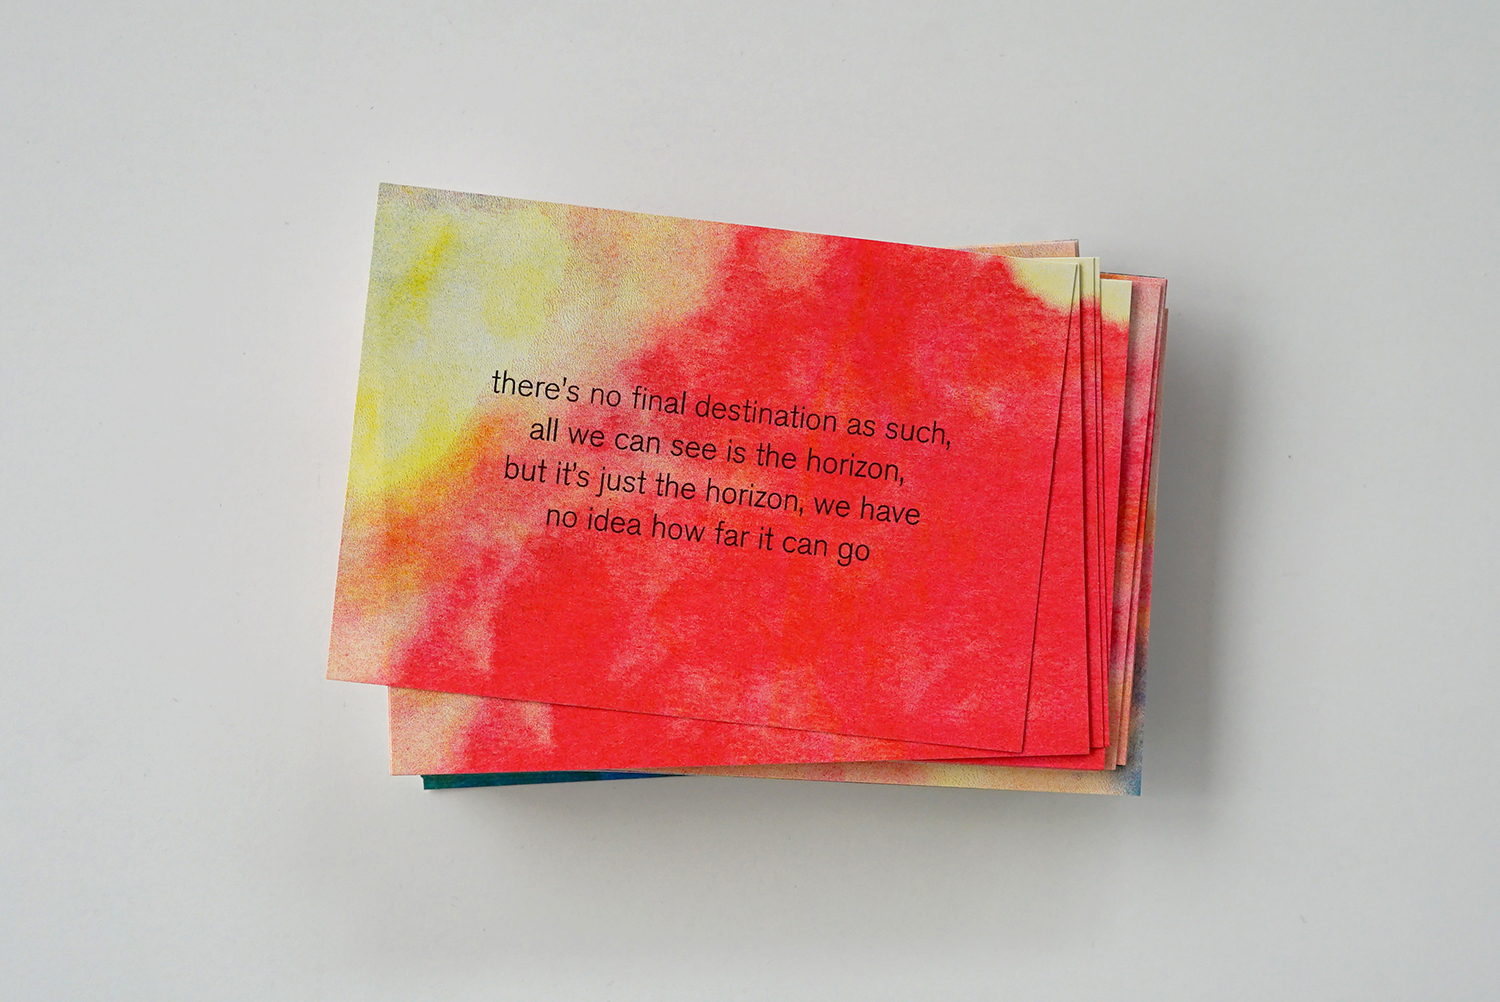 there's no final destination as such,
all we can see is the horizon,
but it's just the horizon, we have
no idea how far it can go